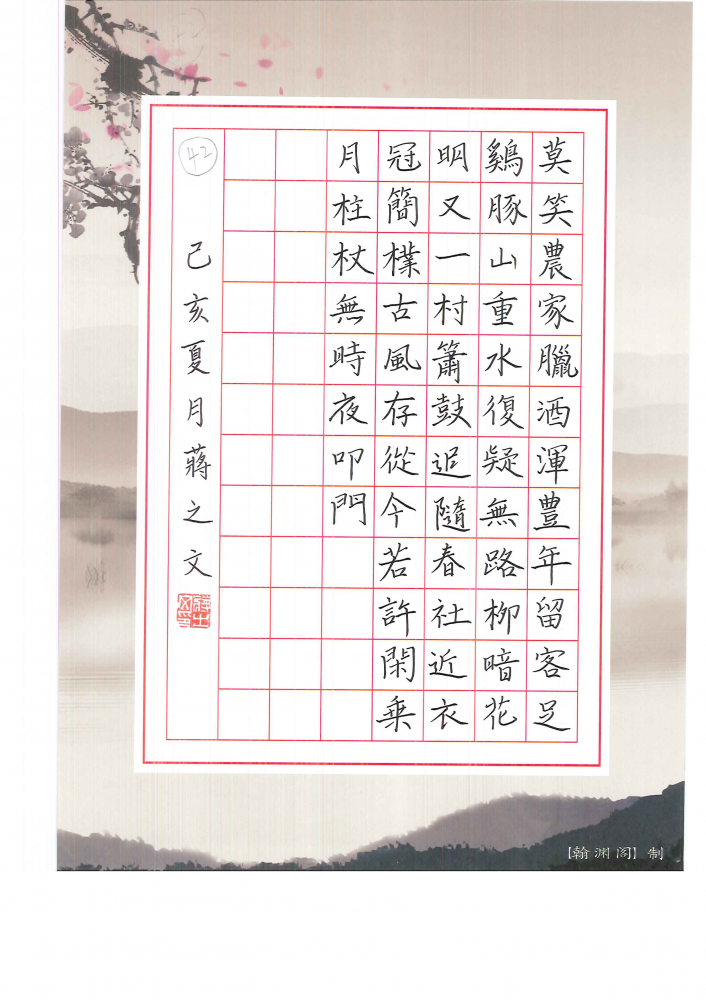 莫笑農家臘酒渾豊年留客足
鷄豚山重水復疑無路柳暗花
明又一村簫鼓追隨春社近衣
冠簡樸古風存從今若許閑乗
月柱杖無時夜叩門
己亥夏月蔣之文
42
【翰渊阁】制